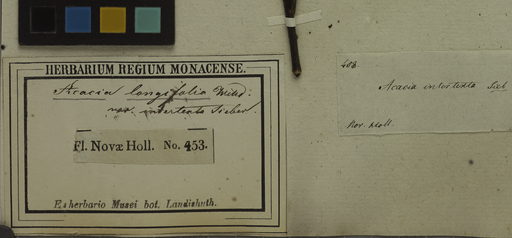 HERBARIUM REGIUM MONACENSE.
Acacia longifolia Willd:
var. intertexta Sieber.
Fl. Novæ Holl. No. 453.
Ex herbario Musei bot. Landishuth.
Acacia intertexta Sieb
Nov. Holl.